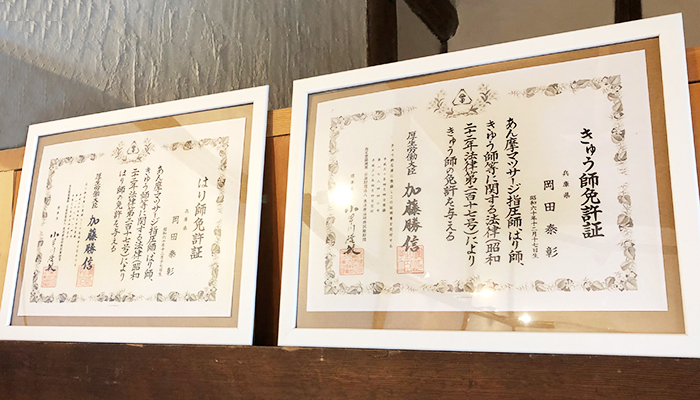 はり師免許証
兵庫県
岡田泰彰
あん摩マツサージ指圧師、はり師、
きゆう師等に関する法律（昭和
二十二年法律第二百十七号）により
はり師の免許を与える
厚生労働大臣 加藤勝信
きゅう師免許証
兵庫県
岡田泰彰
昭和六十年十二月十七日生
あん摩マツサージ指圧師、はり師、
きゆう師等に関する法律（昭和
二十二年法律第二百十七号）により
きゅう師の免許を与える
厚生労働大臣 加藤勝信